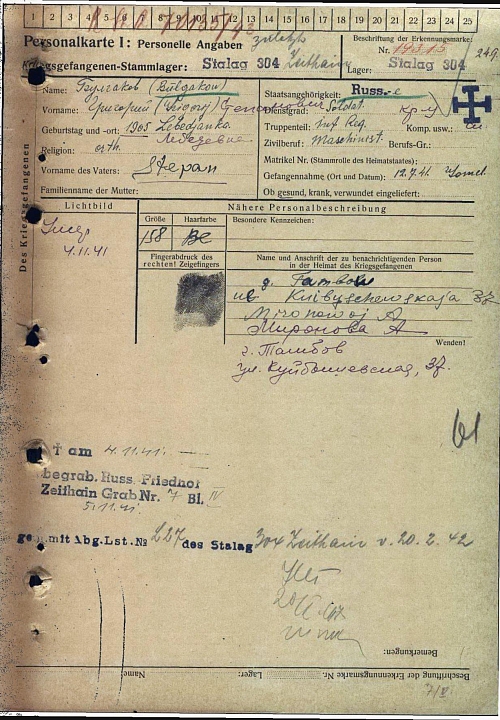 1 2 3 4 5 6 7 8 9 10 11 12 13 14 15 16 17 18 19 20 21 22 23 24 25
Personalkarte I: Personelle Angaben
Kriegsgefangenen-Stammlager: Stalag 304 Zeithain
Beschriftung der Erkennungsmarke:
Nr. 249
Lager: Stalag 304
Des Kriegsgefangenen
Name: Булгаков (Bulgakow)
Vorname: Григорий (Grigorij) Степанович
Geburtstag und -ort: 1905 Lebedjanka
Religion: orth.
Vorname des Vaters: Stepan
Familienname der Mutter:
Staatsangehörigkeit: Russ.
Dienstgrad: Soldat
Truppenteil: Inf. Reg. Komp. usw.:
Zivilberuf: Maschinist Berufs-Gr.:
Matrikel Nr. (Stammrolle des Heimatstaates):
Gefangennahme (Ort und Datum): 12.7.41. Gomel
Ob gesund, krank, verwundet eingeliefert:
Lichtbild
4.11.41
Nähere Personalbeschreibung
Größe Haarfarbe Besondere Kennzeichen:
158
Fingerabdruck des rechten! Zeigefingers
Name und Anschrift der zu benachrichtigenden Person
in der Heimat des Kriegsgefangenen
g. Tambow
Kuibyschewskaja 37
Mironowoj A
Миронова А
Wenden!
г. Тамбов
ул. Куйбышевская, 37.
61
† am 4.11.41.
begrab. Russ. Friedhof
Zeithain Grab Nr. 7 Bl. IV
5.11.41.
gem. mit Abg.Lst.№ 227 des Stalag 304 Zeithain v. 20.2.42
Bemerkungen:
Beschriftung der Erkennungsmarke Nr. Lager: Name: